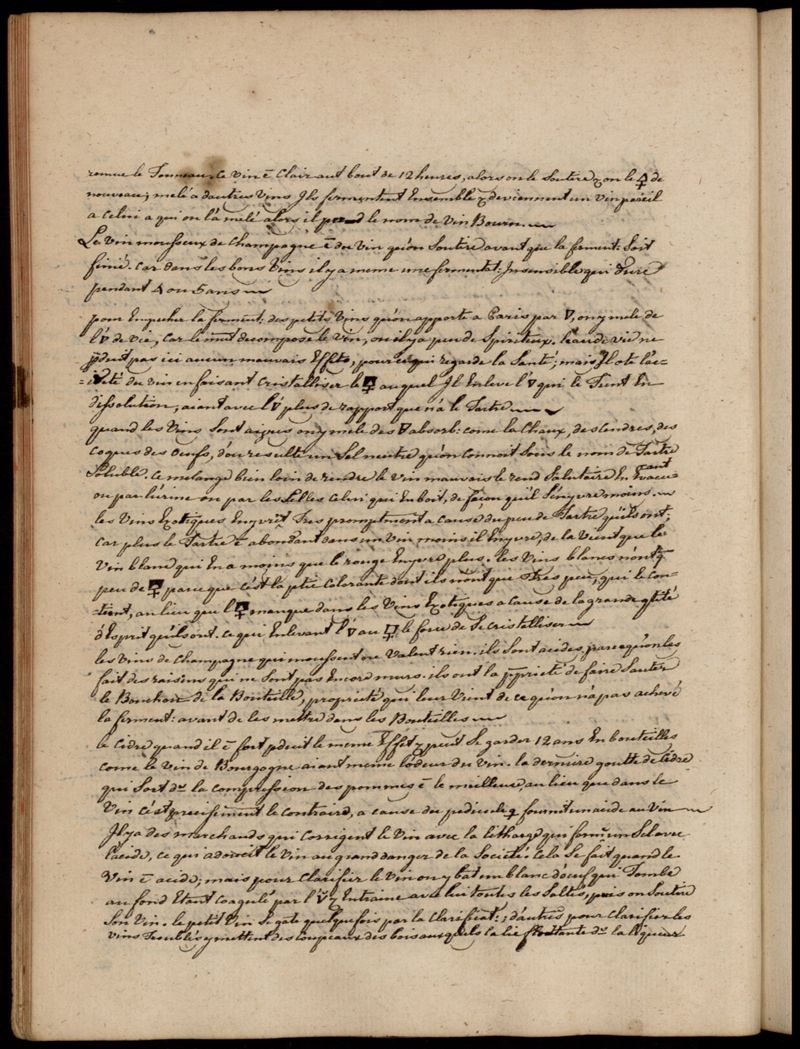 remue le Tonneau, ce vin ē Clair aut bout de 12 heures, alors on le Soutire, on le de
nouveau; melé a dautres vins Ils fermentent Ensemble & deviennent un vin pareil
a Celui a qui on l'a melé alors il prend le nom de Vin Bouru
Le vin mousseux de Champagne ē du Vin qu'on Soutire avant que la ferment: Soit
finie. car dans les bons Vins il y a meme une fermentat: Insensible qui dure
pendant 4 ou 5 ans
pour Empecher la ferment: des petits Vins qu'on apporte a Paris par ▽, on y mele de
l'▽ de vie, car le mut decompose le Vin, ou il y a peu de Spiritueux. l'eau de vie ne
pduit pas ici aucun mauvais Effet, pour ce qui regarde la Santé; mais Il ote l'ac=
=reté du vin en faisant Cristalliser le auquel Il Enleve l'▽ qui le Tient En
dissolution, aiant avec l'▽ plus de rapport que n'a le Tartre
quand les Vins Sont aigres on y mele des ▽ absorb: come la Chaux, des Cendres, des
coques des Oeufs, d'ou resulte un Sel neutre qu'on connoit Sous le nom de Tartre
Soluble. ce melange bien loin de rendre le vin mauvais le rend Salutaire En Evacuant
ou par l'urine ou par les Selles Celui qui En boit, de façon qu'il S'enyvre moins.
les Vins Exotiques Enyvrt Tres promptement a cause du peu de Tartre qu'ils ont;
car plus le Tartre ē abondant dans un vin moins il Enyvre, de la Vient que le
Vin blanc qui En a moins que le rouge Enyvre plus. les Vins blancs n'ont q
peu de parce que c'est la ptie Colorante dont ils n'ont que Tres peu, qui le Con=
=tient, au lieu que l' manque dans les Vins Exotiques a Cause de la grande qtité
d'Esprit qu'ils ont. ce qui Enlevant l'▽ au le force de Se cristalliser
les Vins de Champagne qui moussent ne Valent rien. ils Sont acides, parcequ'on les
fait des raisins qui ne Sont pas Encore murs. ils ont la ppriete de faire Sauter
le Bouchon de la Bouteille, proprieté qui leur Vient de ce qu'on n'a pas achevé
la ferment: avant de les mettre dans les Bouteilles
le Cidre quand il ē fort pduit le meme Effet, & peut Se garder 12 ans En bouteilles
come le Vin de Bourgogne aiant meme l'odeur du Vin. la derniere goutte de Cidre
qui Sort de la compression des pommes ē le meilleur, au lieu que dans le
Vin c'est precisement le contraire, a cause du pedicule q fournit un acide au Vin
Il y a des marchands qui corrigent le Vin avec la litharge qui forme un Sel avec
l'acide, ce qui adoucit le Vin au grand danger de la Societé. Cela Se fait quand le
Vin ē acide; mais pour Clarifier le Vin on y bat un blanc d'oeuf qui Tombe
au fond Etant coagulé par l' & Entraine avec lui toutes les Saltés, puis on Soutire
Son Vin. le petit Vin Se gate quelque fois par la Clarificat:; d'autres pour clarifier les
vins Troublés y mettent des coupeaux des bois auxquels la lie flottante de la liqueur